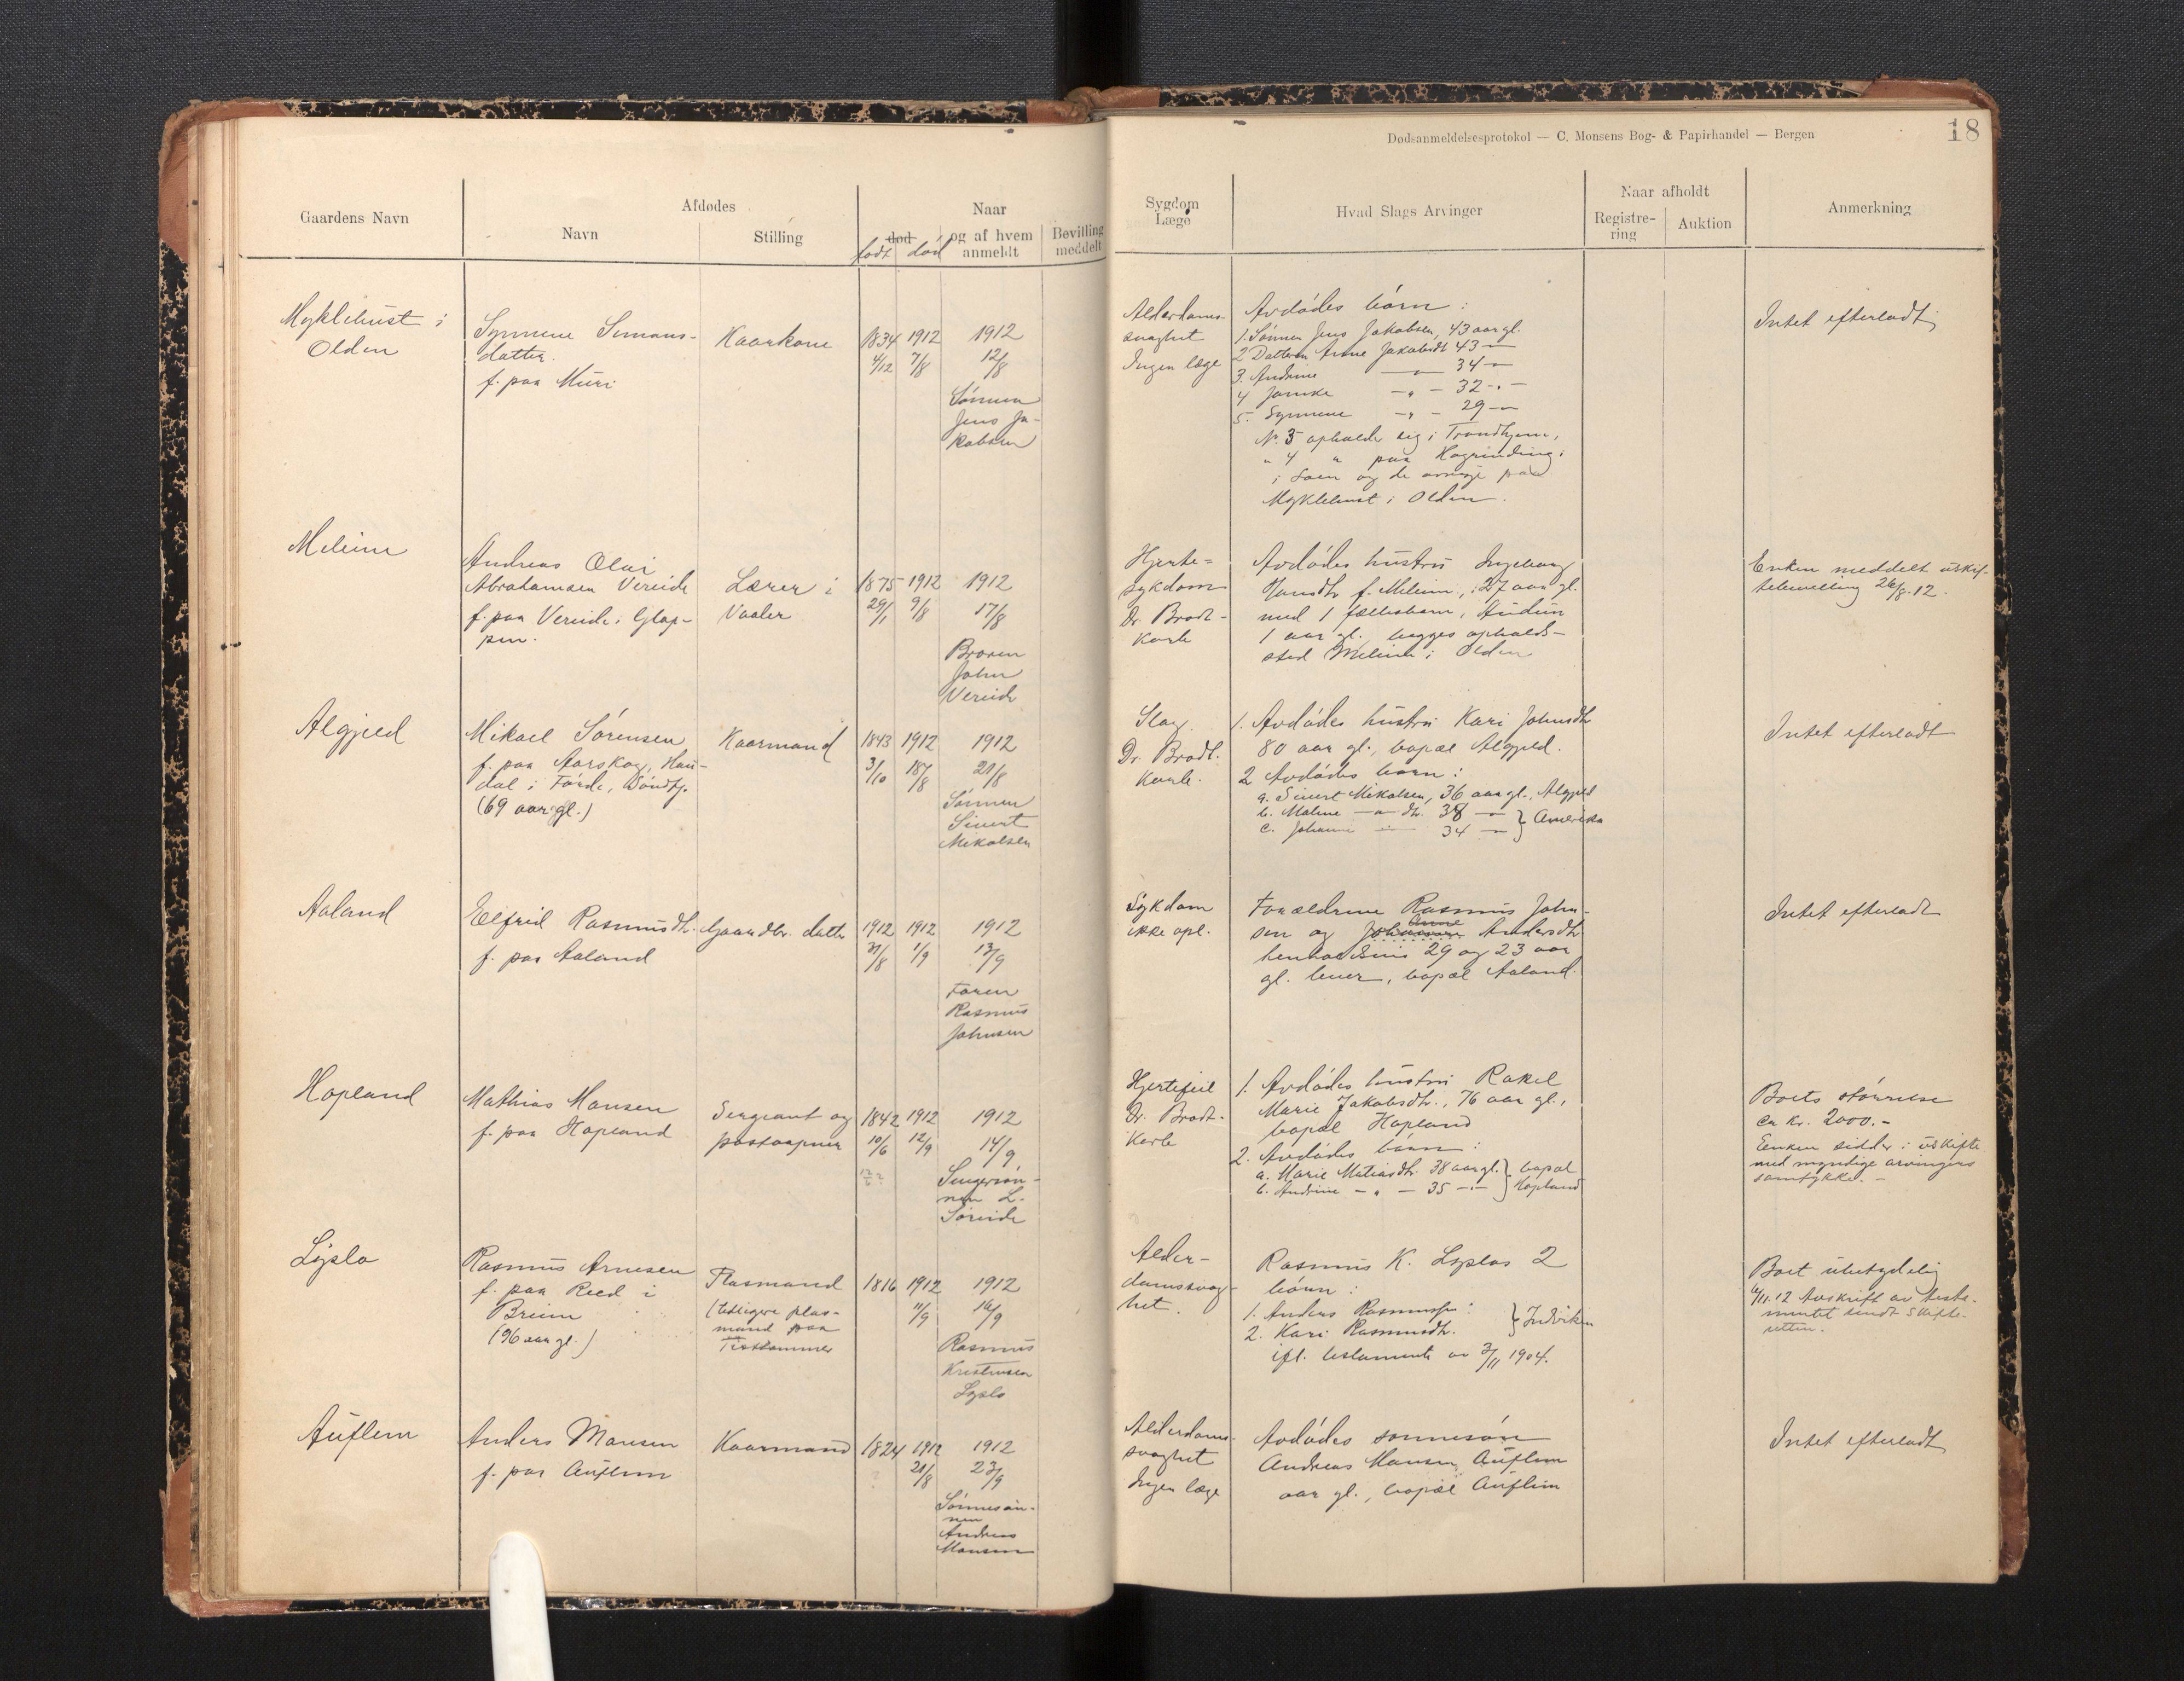 Dødsanmeldelsesprotokol — C. Monsens Bog- & Papirhandel — Bergen
18
Gaardens Navn
Afdødes
Navn
Stilling
Naar
død
født død
og af hvem
anmeldt
Bevilling
meddelt
Sygdom
Læge
Hvad Slags Arvinger
Naar afholdt
Registre-
ring
Auktion
Anmerkning
Myklebust i
Olden
Synneve Simons-
datter.
f. paa Muri
Kaarkone
1834 4/12
1912 7/8
1912
12/8
Sønnen
Jens Ja-
kobsen
Alderdoms-
svaghet
Ingen læge
Avdødes børn:
1. Sønnen Jens Jakobsen, 43 aar gl.
2 Datteren Anne Jakobsdt 43 —
3. Andrine — 34 —
4 Jamke —„— 32 -.-
5. Synneve —„— 29 —
Nr. 3 opholder sig i Trondhjem,
„ 4 „ paa
i Loen og de øvrige paa
Myklebust i Olden.
Intet efterladt
Melheim
Andreas Olai
Abrahamsen Vereide
f. paa Vereide i Glop-
pen.
Lærer i
Vaaler
1875 29/1
1912 9/8
1912
17/8
Broren
John
Vereide
Hjerte-
sykdom
Dr. Brodt-
korb
Avdødes hustru Ingeborg
Hansdtr f. Meleim, 27 aar gl.
med 1 fællesbarn, Audun
1 aar gl. begges opholds-
sted Meleim i Olden
Enken meddelt uskif-
tebevilling 26/8.12.
Algjeld
Mikael Sørensen
f. paa Aarskog, Hau-
dal i Førde, Søndfj.
(69 aar gl.)
Kaarmand
1843 3/10
1912 18/8
1912
21/8
Sønnen
Sivert
Mikalsen
Slag
Dr. Brodt-
korb.
1. Avdødes hustru Kari Johnsdtr
80 aar gl., bopæl Algjeld.
2 Avdødes børn:
a. Sivert Mikalsen, 36 aar gl., Algjeld
b. Maline —„— dtr. 38 — } Amerika
c. Johanne — 34 —
Intet efterladt
Aaland
Elfrid Rasmusdtr.
f. paa Aaland
Gaardbr. datter
1912 31/8
1912 1/9
1912
13/9
Faren
Rasmus
Johnsen
Sykdom
ikke opl.
Forældrene Rasmus John-
sen og Johanne Anne Andersdtr
henholdsvis 29 og 23 aar
gl. lever, bopæl Aaland.
Intet efterladt
Hopland
Mathias Monsen
f. paa Hopland
Sergeant og
postaapner
1842 10/6
1912 12/9
1912
14/9
Svigersøn-
nen L.
Søreide
Hjertefeil
Dr. Brodt-
korb
1. Avdødes hustru Rakel
Marie Jakobsdtr., 76 aar gl.,
bopæl Hopland
2. Avdødes børn:
a. Marie Matiasdtr. 38 aar gl. } bopæl
b. Andrine —„— 35 —„— } Hopland
Boets størrelse
ca kr. 2000.-
Enken sidder i uskifte
med myndige arvingers
samtykke. —
Lyslo
Rasmus Arnesen
f. paa Reed i
Breim
(96 aar gl.)
Plasmand
(tidligere plas-
mand paa
1816
1912 11/9
1912
16/9
Rasmus
Kristensen
Lyslo
Alder-
domssvag-
het.
Rasmus K. Lyslos 2
børn:
1. Anders Rasmussen } Indviken
2. Kari Rasmusdtr.
ifl. testamente av 3/11 1904.
Boet ubetydelig
6/11.12 Avskrift av testa-
mentet sendt skifte-
retten.
Auflem
Anders Monsen
f. paa Auflem
Kaarmand
1824
?
1912 21/8
1912
23/9
Sønnesøn-
nen
Andreas
Monsen
Alderdoms-
svaghet
Ingen læge
Avdødes sønnesøn
Andreas Monsen Auflem
aar gl., bopæl Auflem
Intet efterladt